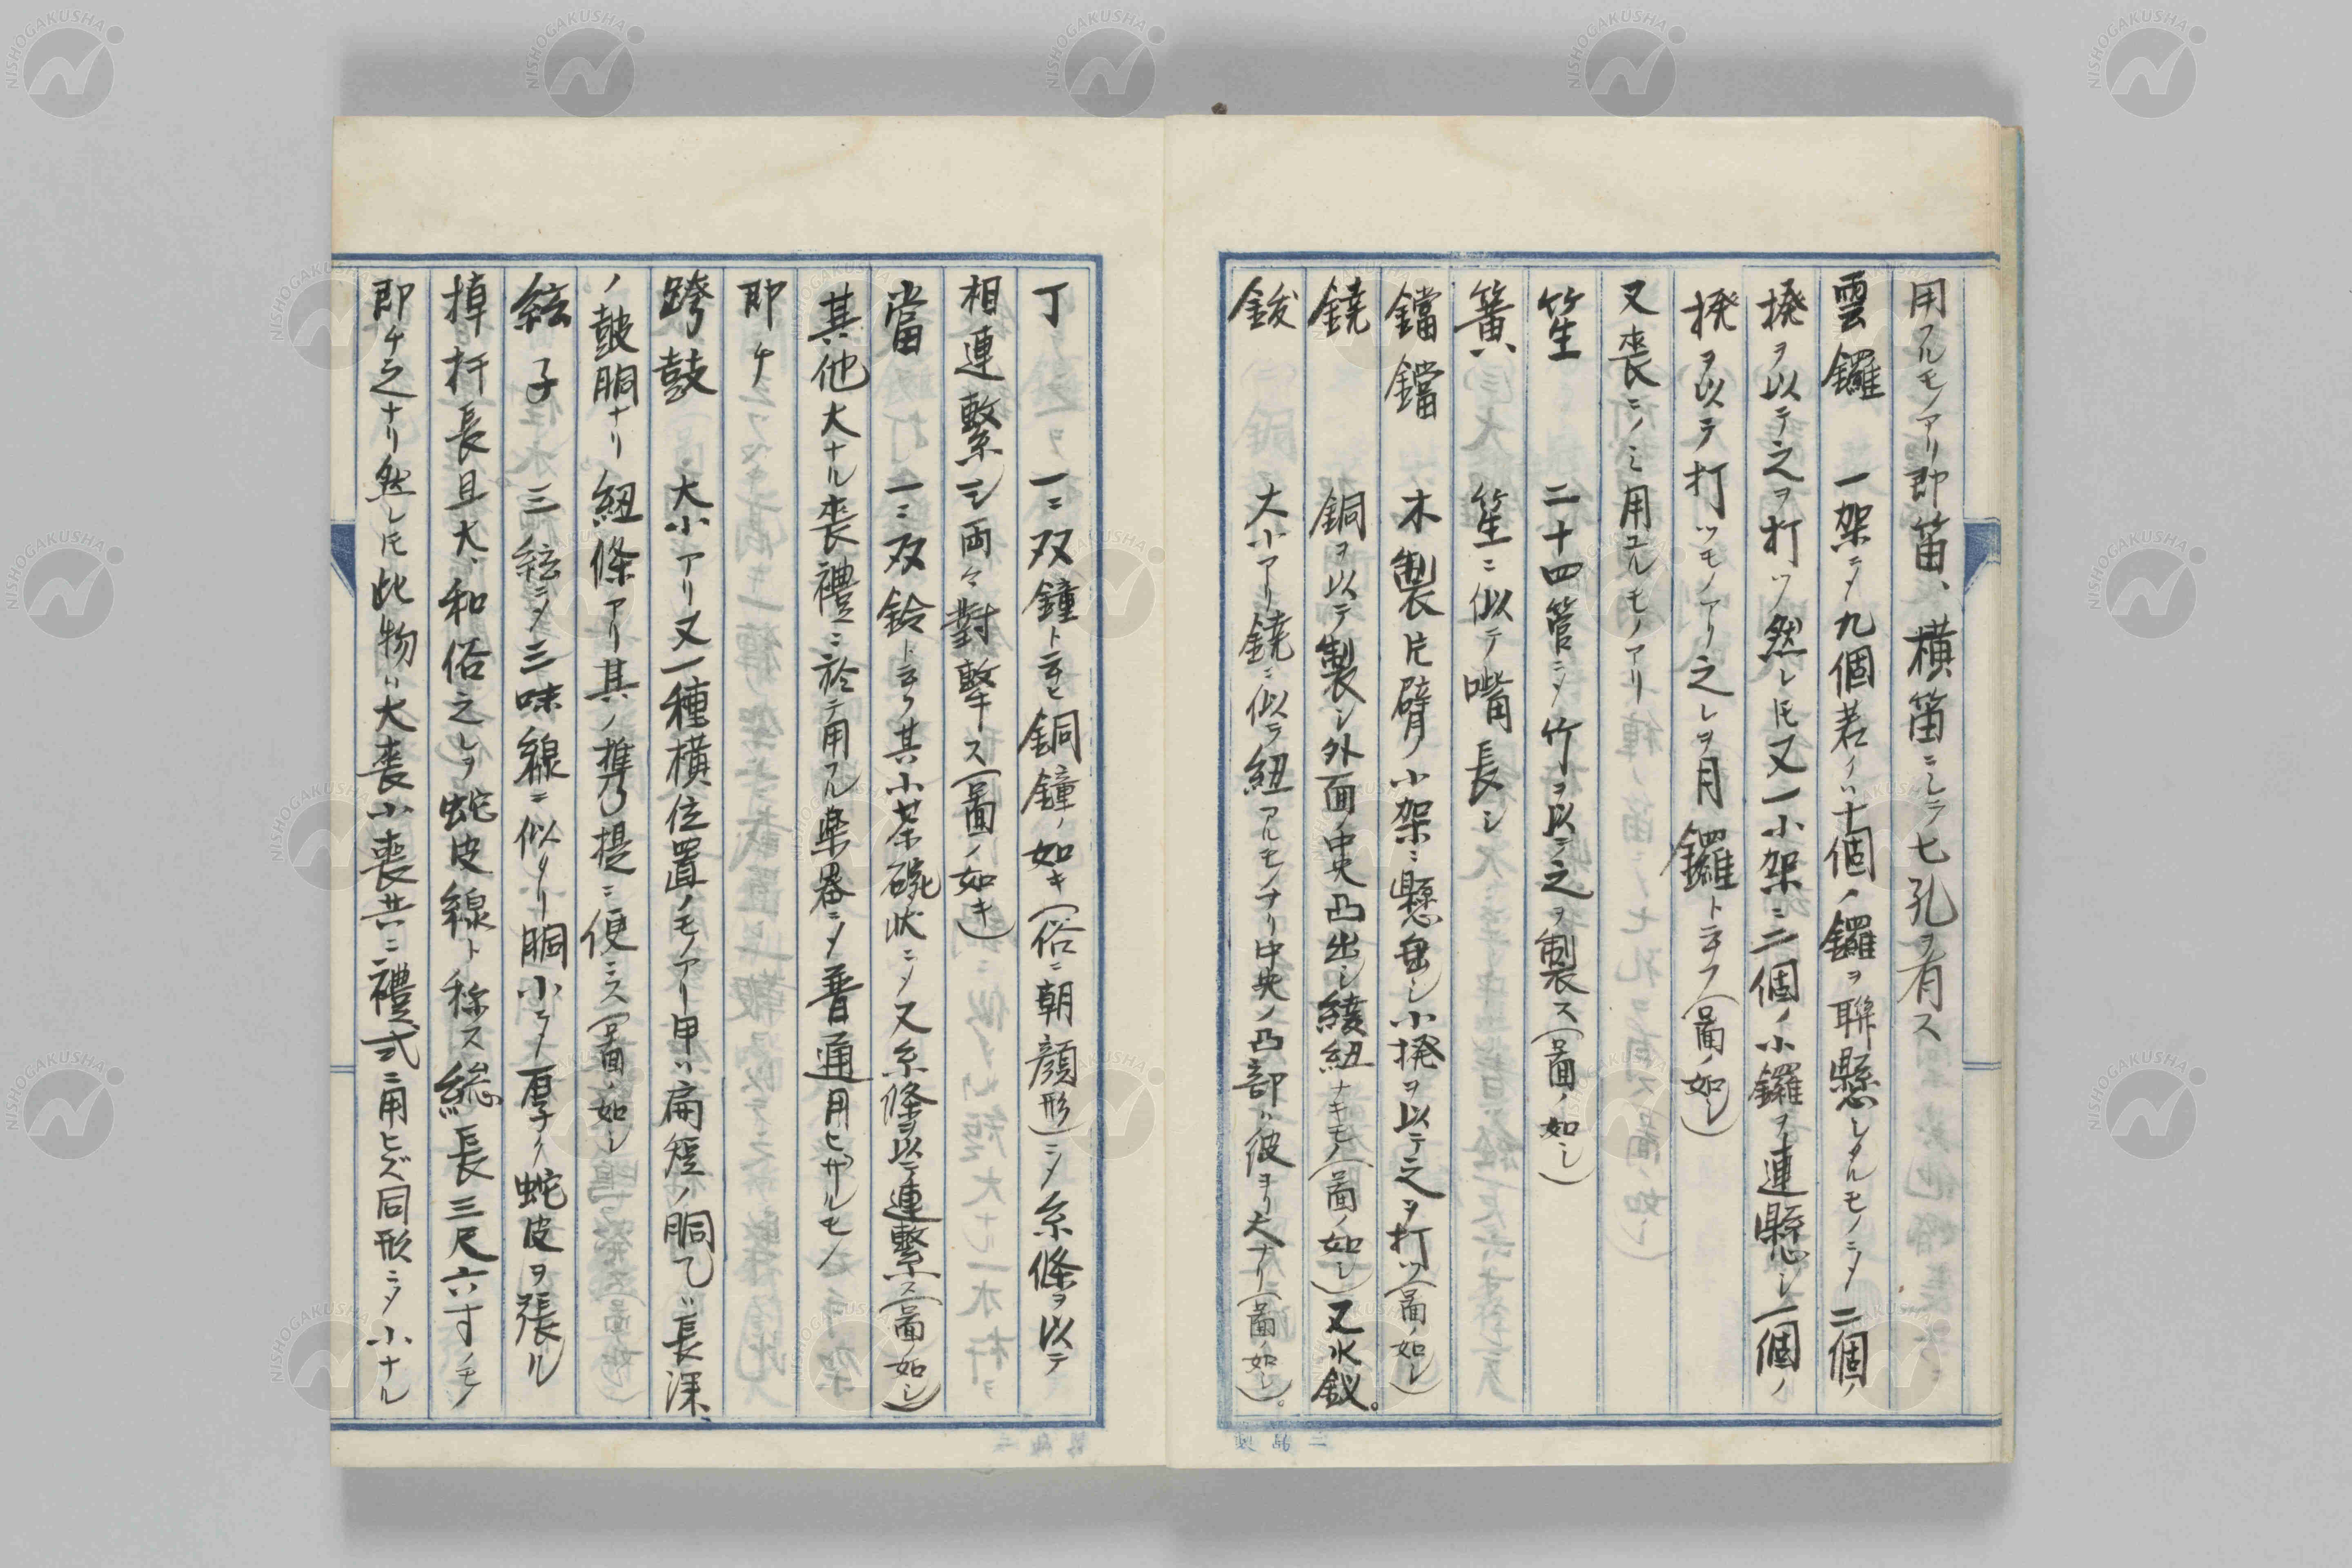 用フルモノアリ即笛、横笛ニシテ七孔ヲ有ス
雲鑼 一架ニ〆九個若クハ十個ノ鑼ヲ聯懸シタルモノニ〆二個ノ
撥ヲ以テ之ヲ打ツ然レ𪜈又一小架ニ二個ノ小鑼ヲ連懸シ一個ノ
撥ヲ以テ打ツモノアリ之レヲ月鑼ト云フ(啚ノ如シ)
又喪ニノミ用ユルモノアリ
笙 二十四管ニ〆竹ヲ以テ之ヲ製ス(啚ノ如シ)
簧 笙ニ似テ嘴長シ
鐺鐺 木製片臂ノ小架ニ懸垂シ小撥ヲ以テ之ヲ打ツ(啚ノ如シ)
鐃 銅ヲ以テ製シ外面ノ中央凸出シ綾紐ナキモノ(啚ノ如シ)又水釵。
鈸 大小アリ鐃ニ似テ紐アルモノナリ中央ノ凸部ハ彼ヨリ大ナリ(啚ノ如シ)。
丁 一ニ双鐘ト云ヒ銅鐘ノ如キ(俗ニ朝顔形)ニ〆糸條ヲ以テ
相連繫シ両々對擊ス(啚ノ如キ)
當 一ニ双鈴ト云ク其小茶碗状ニ〆又糸條ヲ以テ連繫ス(啚ノ如シ)
其他大ナル喪禮ニ於テ用フル楽器ニ〆普通用ヒザルモノ
即チ
跨鼓 大小アリ又一種横位置ノモノアリ甲ハ扁短ノ胴乙ハ長深、
ノ皷胴ナリ紐條アリ其ノ携乃提ニ便ニス(啚ノ如シ
絃子 三絃ニ〆三味線ニ似タリ胴小ニ〆厚ク蛇皮ヲ張ル
棹杆長且大、和俗之レヲ蛇皮線ト称ス総長三尺六寸ノモノ
即チ之ナリ然レ𪜈此物ハ大喪小喪共ニ禮式ニ用ヒズ同形ニ〆小ナル